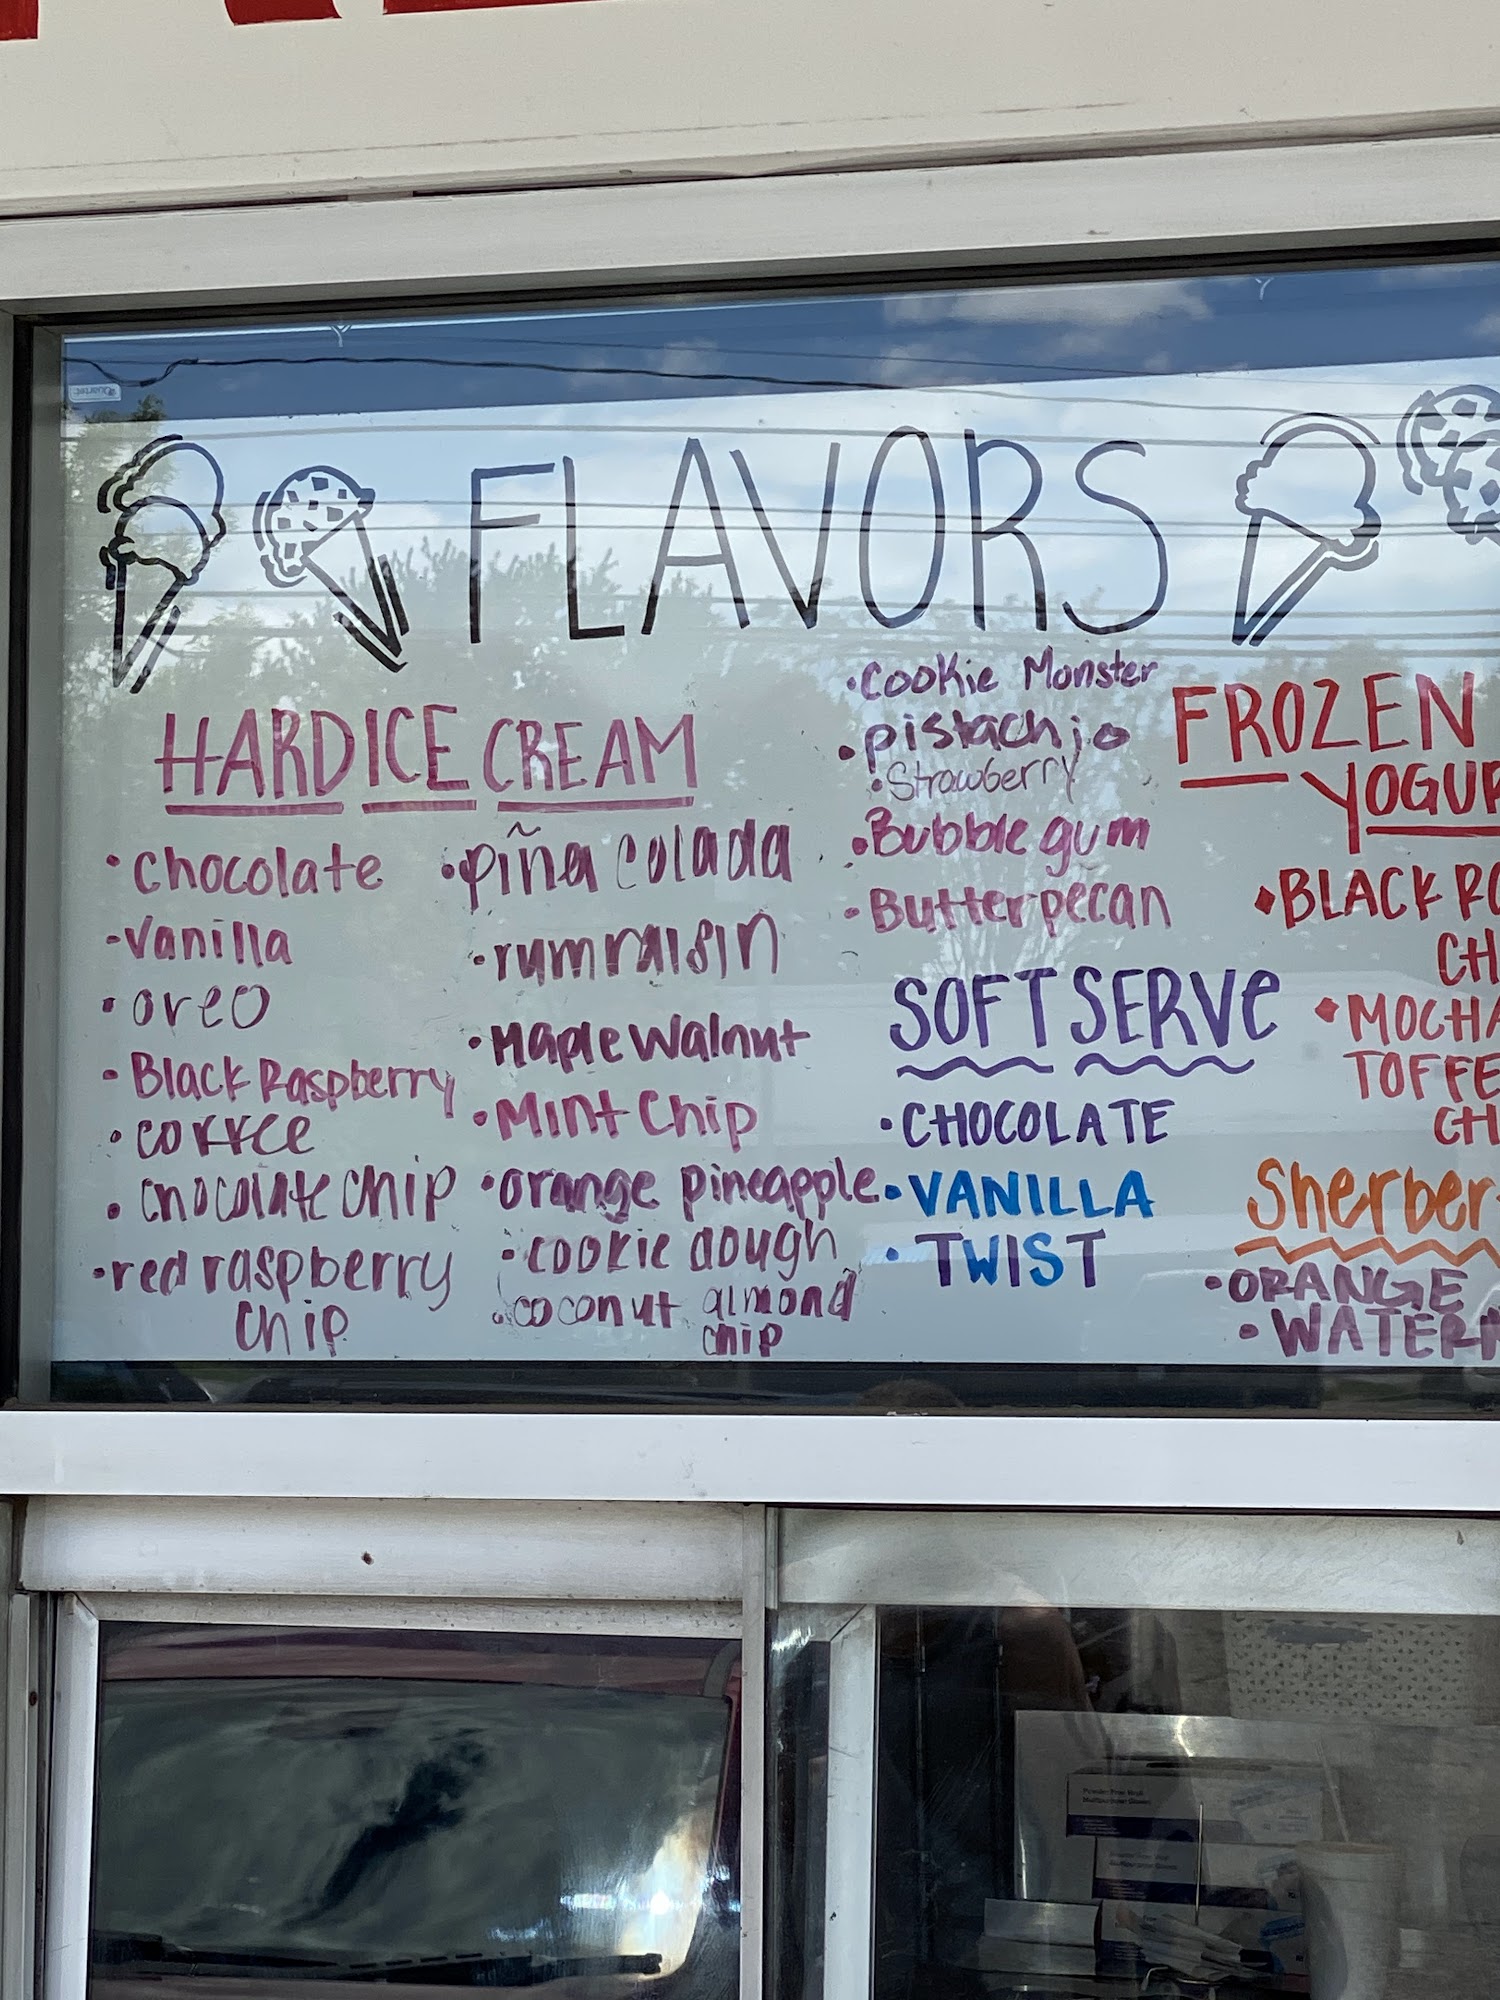 FLAVORS
HARD ICE CREAM
• chocolate
- vanilla
• oreo
• Black Raspberry
• coffee
• chocolate chip
• red raspberry
chip
• piña colada
• rum raisin
• Maple walnut
• Mint Chip
• orange pineapple
• cookie dough
• coconut almond
chip
• Cookie Monster
• pistachio
• Strawberry
• Bubble gum
• Butter pecan
SOFT SERVE
• CHOCOLATE
• VANILLA
• TWIST
FROZEN
YOGUR
• BLACK RO
CH
• MOCHA
TOFFE
CH
Sherber
• ORANGE
• WATERM
Quartet
Powder Free Vinyl
Multipurpose Gloves